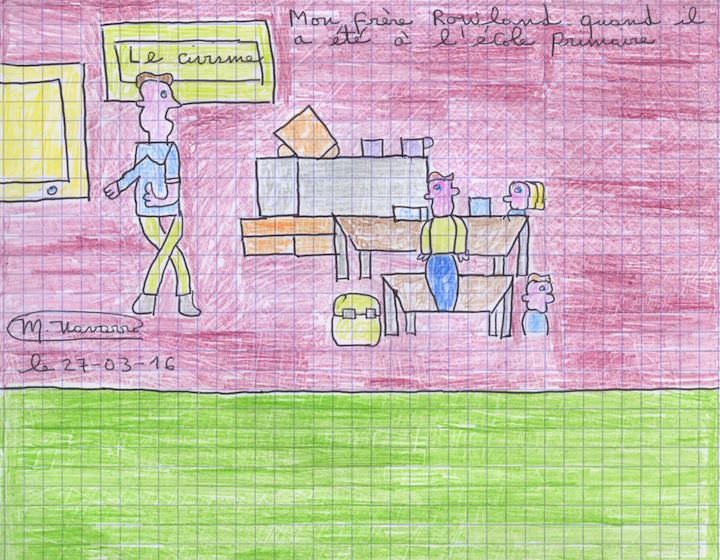 Mon frère Rowland quand il
a été à l'école primaire
Le civisme
M. Navarro
le 27-03-16